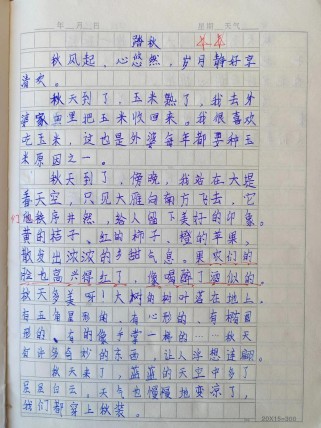 年 月 日 星期 天气
踏秋
秋风起,心悠然,岁月静好享
清欢。
秋天到了,玉米熟了,我去外
婆家田里把玉米收回来。我很喜欢
吃玉米,这也是外婆每年都要种玉
米原因之一。
秋天到了,傍晚,我站在大堤
看天空,只见大雁向南方飞去,它
们秩序井然,给人留下美好的印象。
黄的桔子、红的柿子、橙的苹果,
散发出浓浓的乡甜气息。果农们的
脸也高兴得红了,像喝醉了酒似的。
秋天多美呀!大树的树叶落在地上,
有五角星形的、有心形的、有椭圆
形的、有的像手掌一样的……秋天
有许多奇妙的东西,让人浮想连翩。
秋天来了,蓝蓝的天空中多了
层层白云。天气也慢慢地变凉了,
我们都穿上秋装。
20X15=300